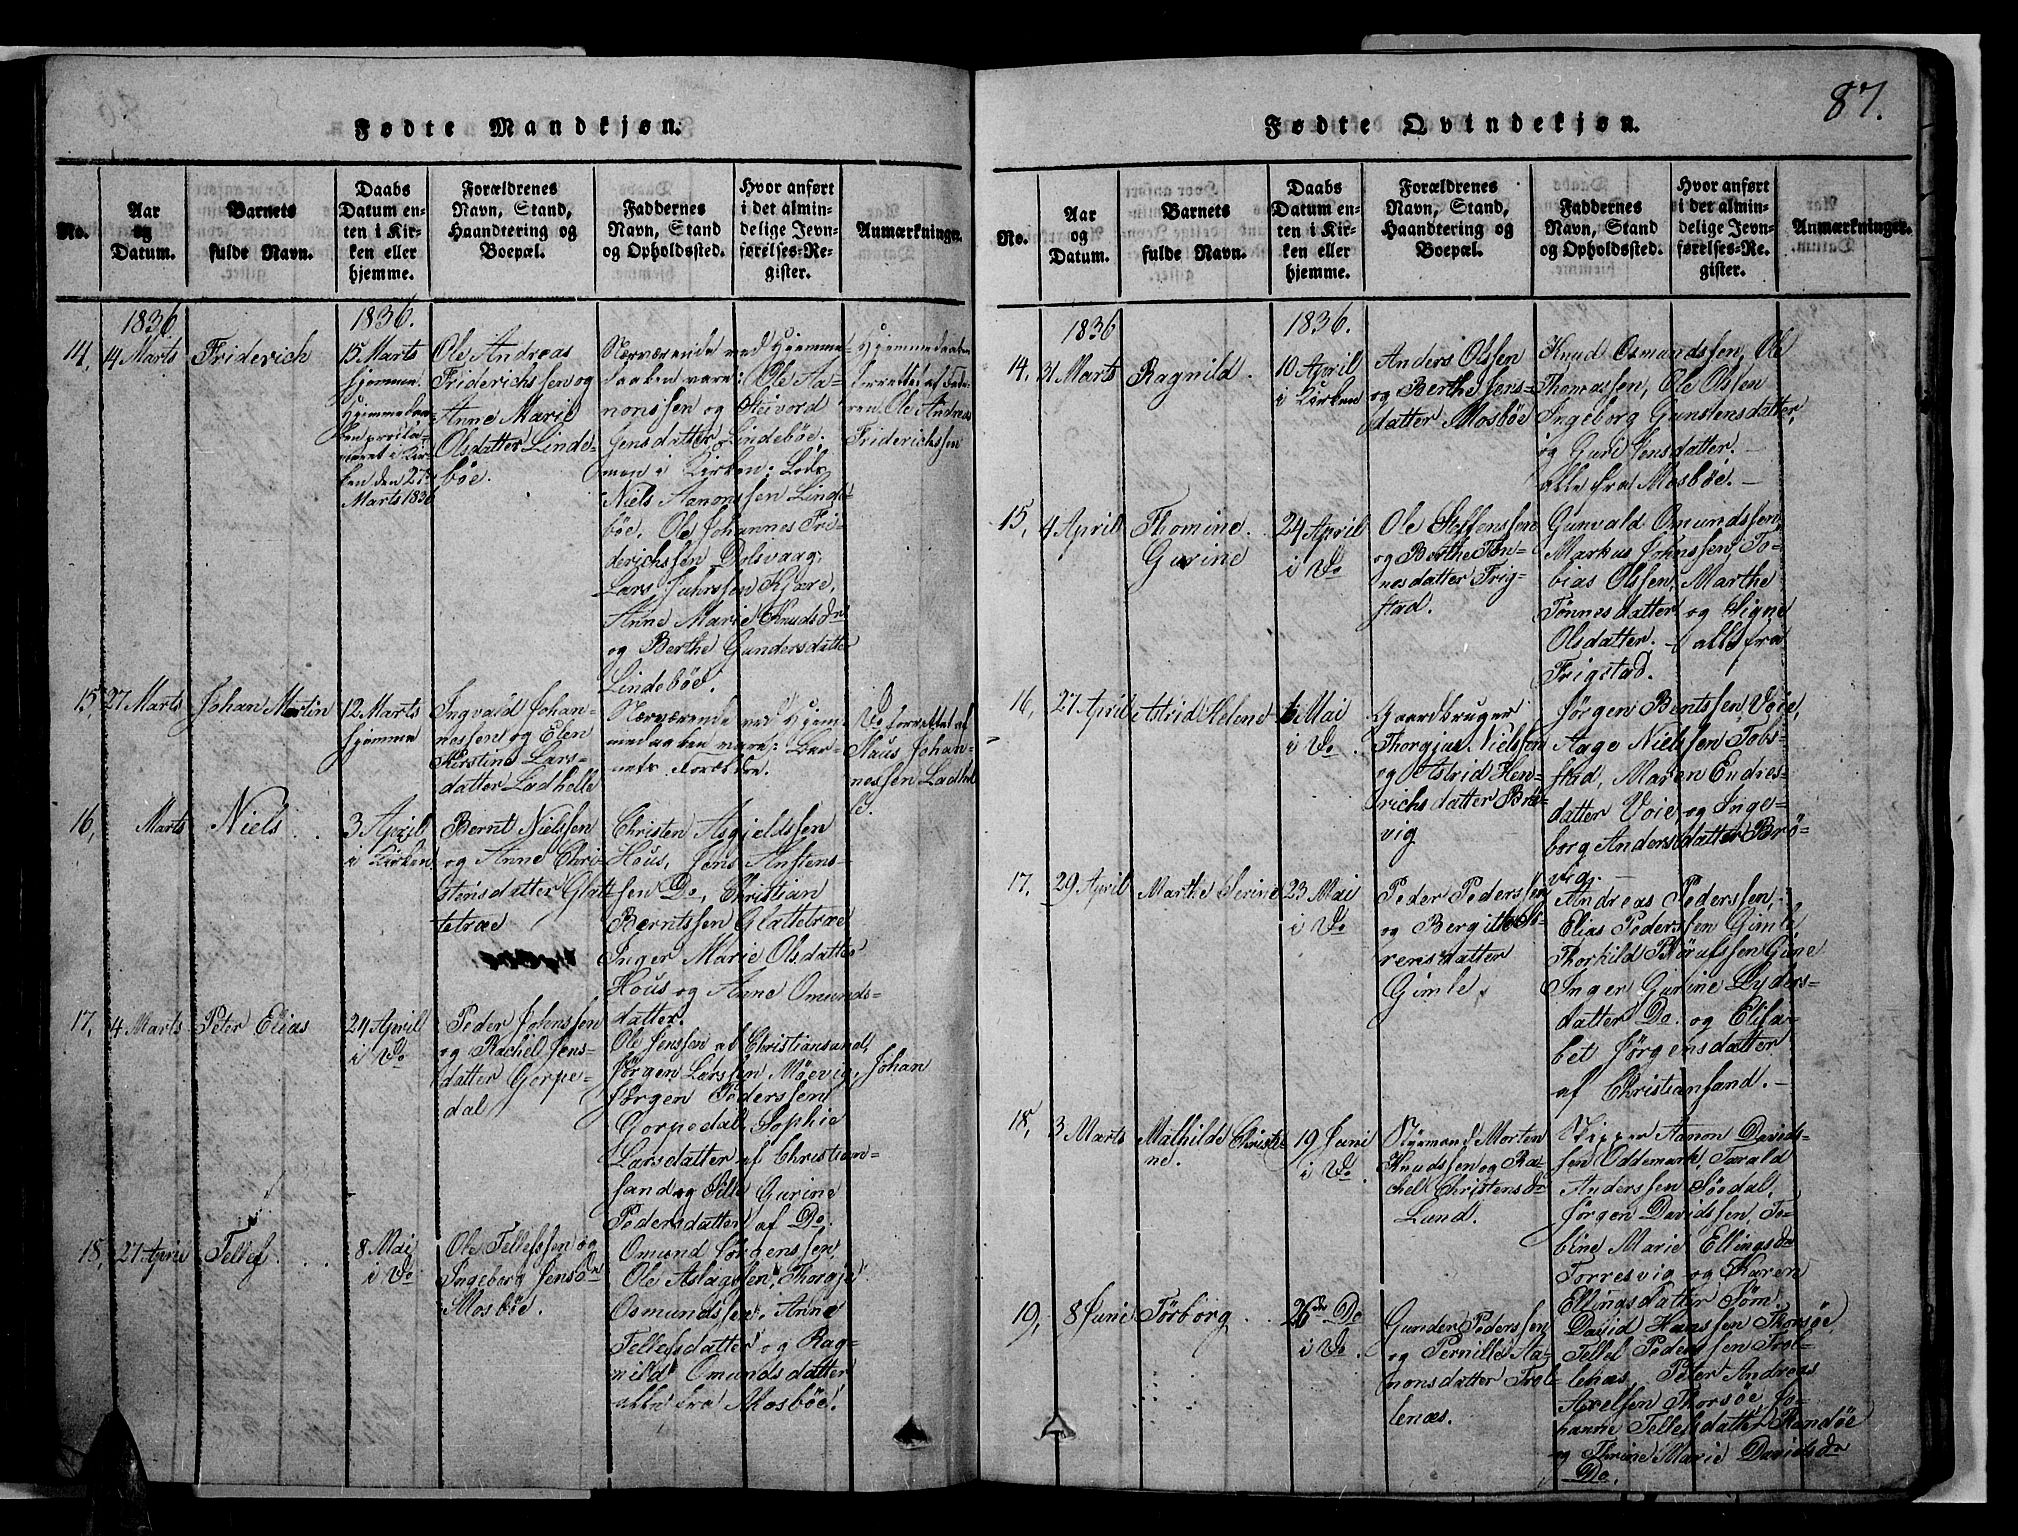 87.
Fødte Mandkjøn.
No.
Aar
og
Datum.
Barnets
fulde Navn.
Daabs
Datum en-
ten i Kir-
ken eller
hjemme.
Forældrenes
Navn, Stand,
Haandtering og
Boepæl.
Faddernes
Navn, Stand
og Opholdssted.
Hvor anført
i det almin-
delige Jevn-
førelses-Re-
gister.
Anmærkninger.
1836
14,
4 Marts
Friderich
1836.
15 Marts
hjemme.
Hjemmedaa-
ben procla-
meret i Kir-
ken den 27de
Marts 1836
Ole Andreas
Friderichssen og
Anne Marie
Olsdatter Linde-
böe.
Nærværende ved Hjemme-
daaben vare: Ole Aa-
nonssen og Steivord
Jensdatter Lindebøe.
men i Kirken:
Niels Aanonssen Linde-
böe, Ole Johannes Fri-
derichssen Dolsvaag,
Lars Kjære,
Anne Marie Knudsdr
og Berthe Gundersdatter
Lindebøe.
Hjemmedaaben
forrettet af Fade-
ren Ole Andreas
Friderichssen
15,
27 Marts
Johan Martin
12 Marts
hjemme
Ingvald Johan-
nessen og Elen
Kirstine Lars-
datter Ladhelle
Nærværende ved Hjem-
medaaben vare: Bar-
nets Forældre.
Do forrettet af
Claus Johan-
nessen Ladhel-
le.
16,
Marts
Niels
3 April
i Kirken
Bernt Nielssen
og Anne Chri-
stensdatter Glat-
tetræe
Christen Asgieldssen
Hous, Jens Anstens-
sen Do, Christian
Berntssen Glattetræe
Inger Marie Olsdatter
Hous og Anne Omunds-
datter.
17,
4 Marts
Peter Elias
24 April
i Do
Peder Johnssen
og Rachel Jens-
datter Gorpe-
dal
Ole Jenssen af Christiansand,
Jørgen Larssen Møevig, Johan
Jørgen Pederssen
Gorpedal, Sophie
Larsdatter af Christian-
sand og Sille Gurine
Pedersdatter af Do.
18,
27 April
Tellef
8 Mai
i Do
Ole Tellefssen og
Ingeborg Jensdr
Mosbøe.
Omund Jørgenssen,
Ole Aslagssen, Thorgje
Osmundssen, Anne
Tellefsdatter og Rag-
nild Omundsdatter
alle fra Mosbøe.
Fødte Qvindekjøn.
No.
Aar
og
Datum.
Barnets
fulde Navn.
Daabs
Datum en-
ten i Kir-
ken eller
hjemme.
Forældrenes
Navn, Stand,
Haandtering og
Boepæl.
Faddernes
Navn, Stand
og Opholdssted.
Hvor anført
i det almin-
delige Jevn-
førelses-Re-
gister.
Anmærkninger.
1836
14,
31 Marts
Ragnild.
1836.
10 April
i Kirken
Anders Olssen
og Berthe Jens-
datter Mosbøe
Knud Osmundssen, Ole
Thomassen, Ole Olssen
Ingeborg Gunstensdatter,
og Guri Jensdatter. —
alle fra Mosbøe. —
15,
4 April
Thomine
Gurine
24 April
i Do
Ole Steffenssen
og Berthe Tøn-
nesdatter Frig-
stad.
Gunvald Omundssen,
Markus Johnssen, To-
bias Olssen, Marthe
Tønnesdatter og Signe
Olsdatter. — alle fra
Frigstad.
16,
27 April
Astrid Helene
6 Mai
i Do
Gaardbruger
Thorgjus Nielssen
og Astrid Hen-
richsdatter Brø-
vig
Jørgen Bentssen Voie,
Aage Nielssen Tobs-
stad, Maren Endres-
datter Voie og Inge-
borg Andersdatter Brø-
vig. —
17,
29 April
Marthe Serine
23 Mai
i Do
Peder Pederssen
og Bergithe Sø-
rensdatter
Gimle.
Andreas Pederssen,
Elias Pederssen Gimle
Thorkild Gimle
Inger Gurine Lyders-
datter Do. og Elisa-
bet Jørgensdatter
af Christiansand. —
18,
3 Marts
Mathilde Christi-
ne.
19 Juni
i Do
Styrmand Morten
Knudssen og Ra-
chel Christensdr
Lund.
Skipper Aanon Davids-
sen Oddemark, Tarald
Anderssen Sødal,
Jørgen Davidssen, To-
bine Marie Ellingsdr
Torresvig og Karen
Ellingsdatter Søm.
19,
8 Juni
Tørborg
26de Do
i Do
Gunder Pederssen
og Pernille Aa-
nonsdatter Trol-
lenæs.
David Hanssen Thorsøe,
Tellef Pederssen Trol-
lenæs, Peter Andreas
Axelssen Thorsøe, Jo-
hanne Tellefsdatter Randøe
og Thrine Marie Davidsdr
Do.